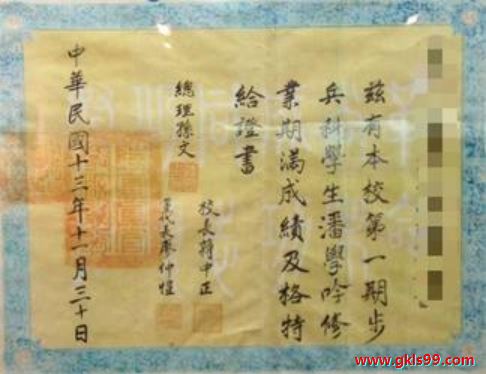 兹有本校第一期步
兵科學生潘學吟修
業期滿成績及格特
給證書
總理孫文
校長蔣中正
黨代表廖仲愷
中華民國十三年十一月三十日
www.gkls99.com